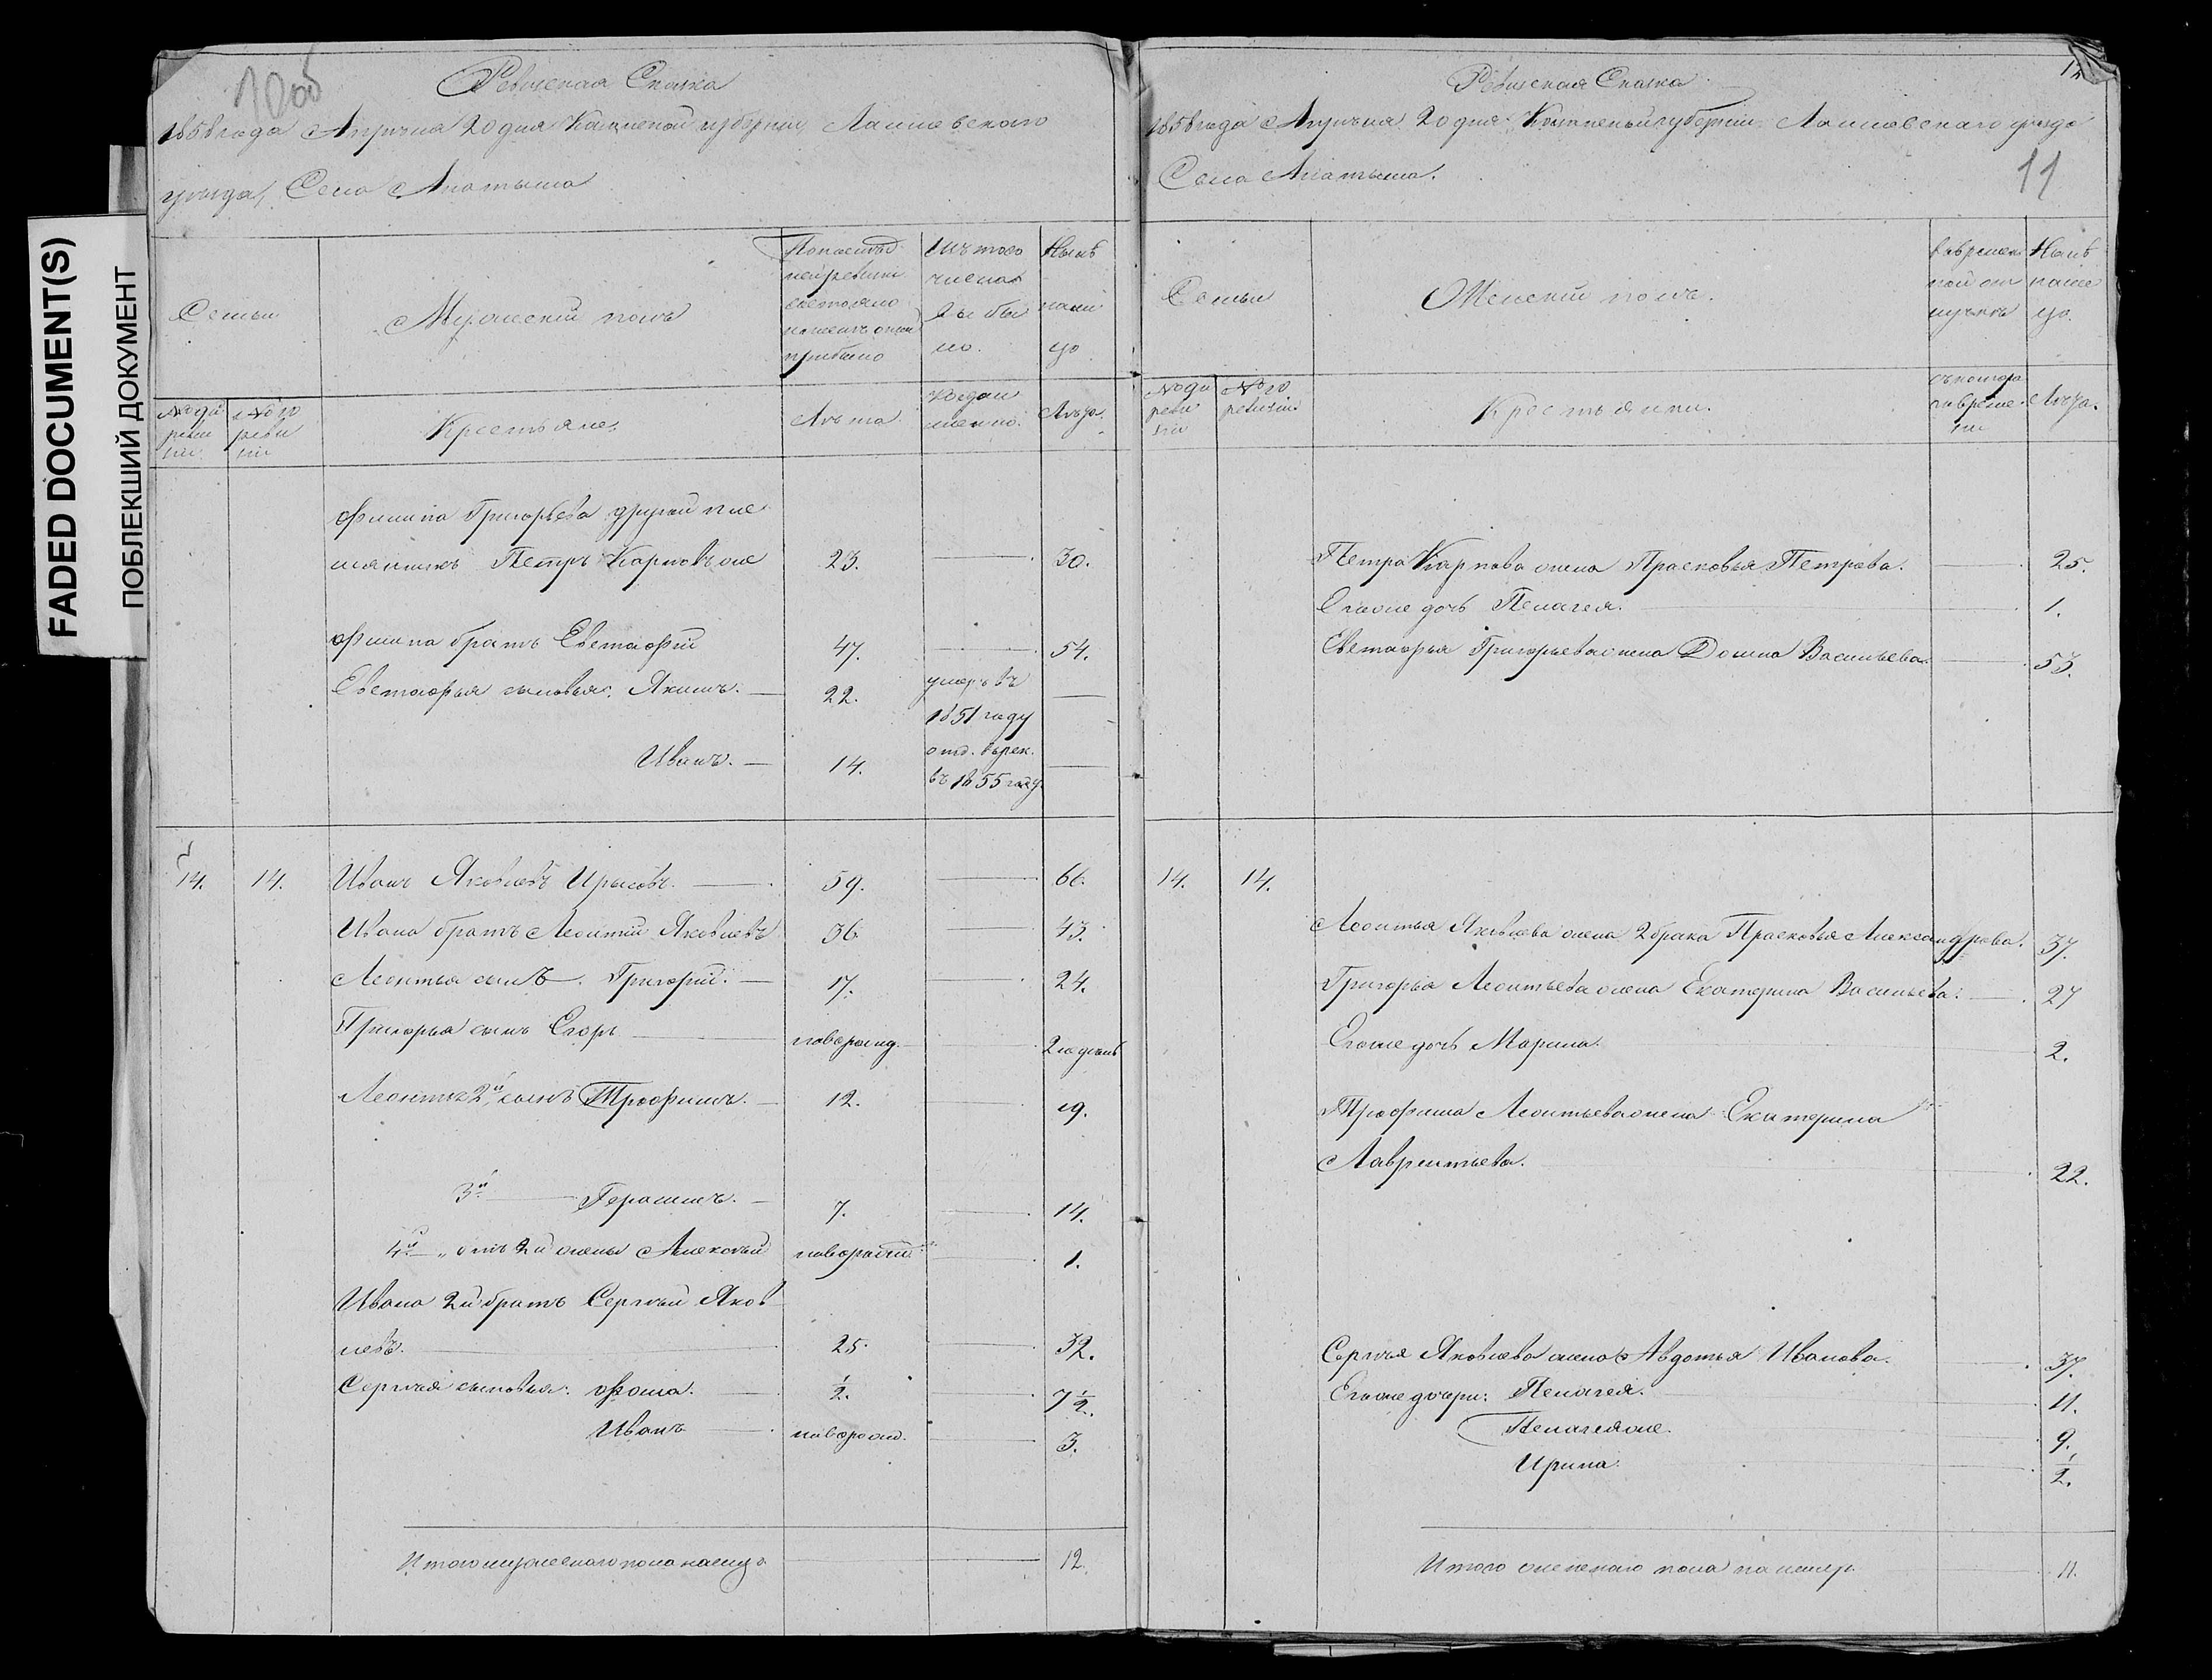 FADED DOCUMENT(S)
ПОБЛЕКШИЙ ДОКУМЕНТ
Ревизская Сказка
1858 года Апреля 20 дня Казанской губернии, Лаишевского
уезда, Села Апатыша
Семьи
Мужеский полъ
По послед
ней ревизии
состояло
и после оной
прибыло
Изъ того
числа
выбы
ло.
Ныне
нали
цо
№ по
реви
зіи
№ по
реви
зіи
Крестьяне.
Лета
Когда и
менно.
Лета.
Филипа Григорьева другой пле
мянникъ Петръ Карповъ же 23. 30.
Филипа братъ Евстафій 47. 54.
Евстафья сыновья: Якимъ. 22. умеръ въ
1851 году
Иванъ. 14. отд. въ рек.
въ 1855 году
14. 14. Иванъ Яковлевъ Ирысовъ. 59. 66.
Ивана братъ Леонтій Яковлевъ 36. 43.
Леонтья сынъ. Григорій. 17. 24.
Григорья сынъ Егоръ новорожд. 2 недель
Леонтья 2й сынъ Трофимъ. 12. 19.
3й Герасимъ. 7. 14.
4й „ отъ 2й жены Алексей новорожд. 1.
Ивана 2й братъ Сергей Яков
левъ. 25. 32.
Сергея сыновья: Фома. 1/2. 7 1/2.
Иванъ новорожд. 3.
Итого мужескаго пола налицо 12.
Ревизская Сказка
12
1858 года Апреля 20 дня Казанской губернии Лаишевскаго уезда
Села Апатыша.
11
Семьи
Женскій полъ.
во времен
ной от
лучке
Ныне
нали
цо.
№ по
реви
зіи
№ по
ревизіи
Крестьянки.
съ котора
го време
ни
Лета.
Петра Карпова жена Прасковья Петрова. 25.
Его же дочь Пелагея. 1.
Евстафья Григорьева жена Домна Васильева 53.
14. 14.
Леонтья Яковлева жена 2 брака Прасковья Александрова. 37.
Григорья Леонтьева жена Екатерина Васильева. 27
Его же дочь Марина. 2.
Трофима Леонтьева жена Екатерина
Лаврентьева. 22.
Сергея Яковлева жена Авдотья Иванова. 37.
Его же дочери: Пелагея. 11.
Пелагея же. 9.
Ирина. 1/2.
Итого женскаго пола на лицо. 11.